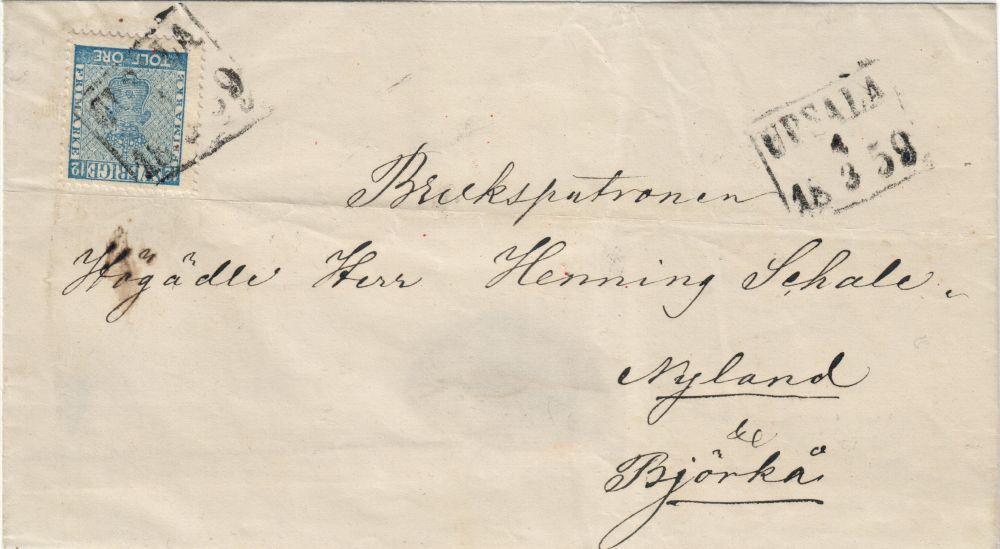 TOLF ÖRE
FRIMÄRKE
FRIMÄRKE
SVERIGE
12
UPSALA
1
18 3 59
Bruckspatronen
Högädle Herr Henning Schale.
Nyland
&
Björkå